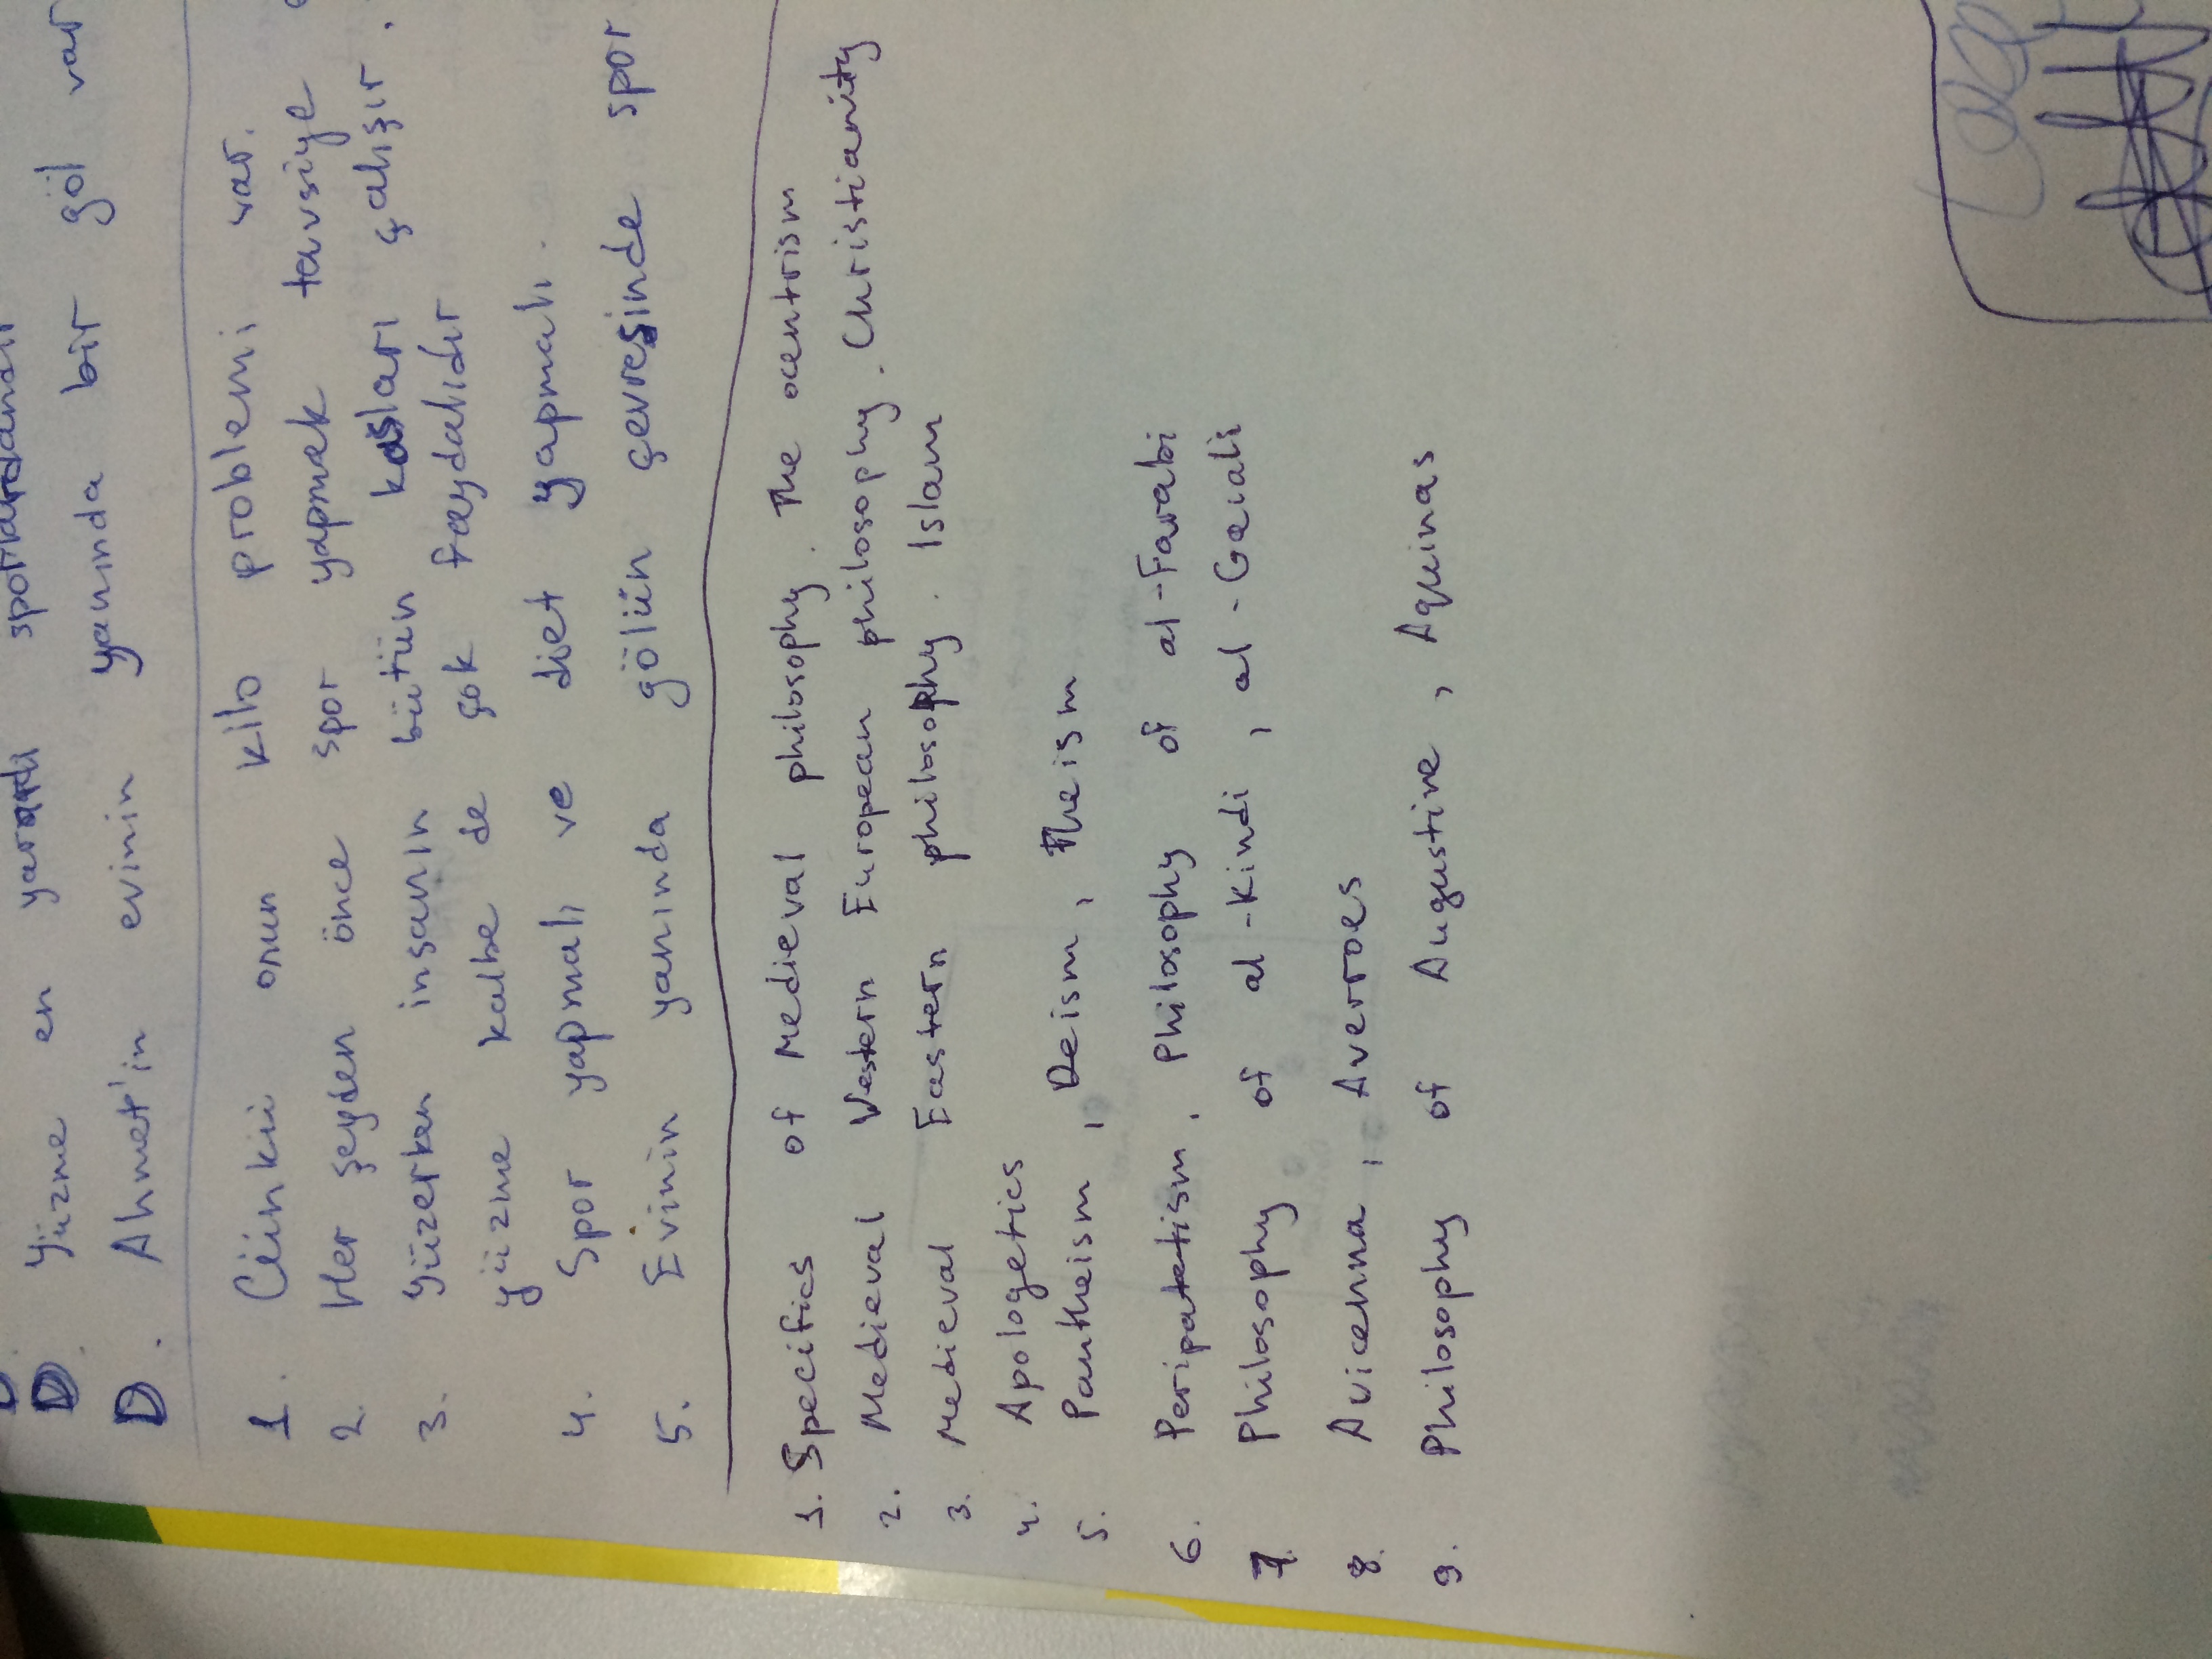 D. Yüzme en yararlı sporlardandır
D. Ahmet'in evinin yanında bir göl var
1. Cünkü onun kilo problemi var.
2. Her şeyden önce spor yapmak tavsiye
3. Yüzerken insanın bütün kasları çalışır.
yüzme kalbe de çok faydalıdır
4. Spor yapmalı ve diet yapmalı.
5. Evinin yanında gölün çevresinde spor
1. Specifics of Medieval philosophy. The ocentrism
2. Medieval Western European philosophy. Christianity
3. Medieval Eastern philosophy. Islam
4. Apologetics
5. Pantheism, Deism, Theism
6. Peripatetism, Philosophy of al-Farabi
7. Philosophy of al-Kindi, al-Gazali
8. Avicenna, Averroes
9. Philosophy of Augustine, Aquinas